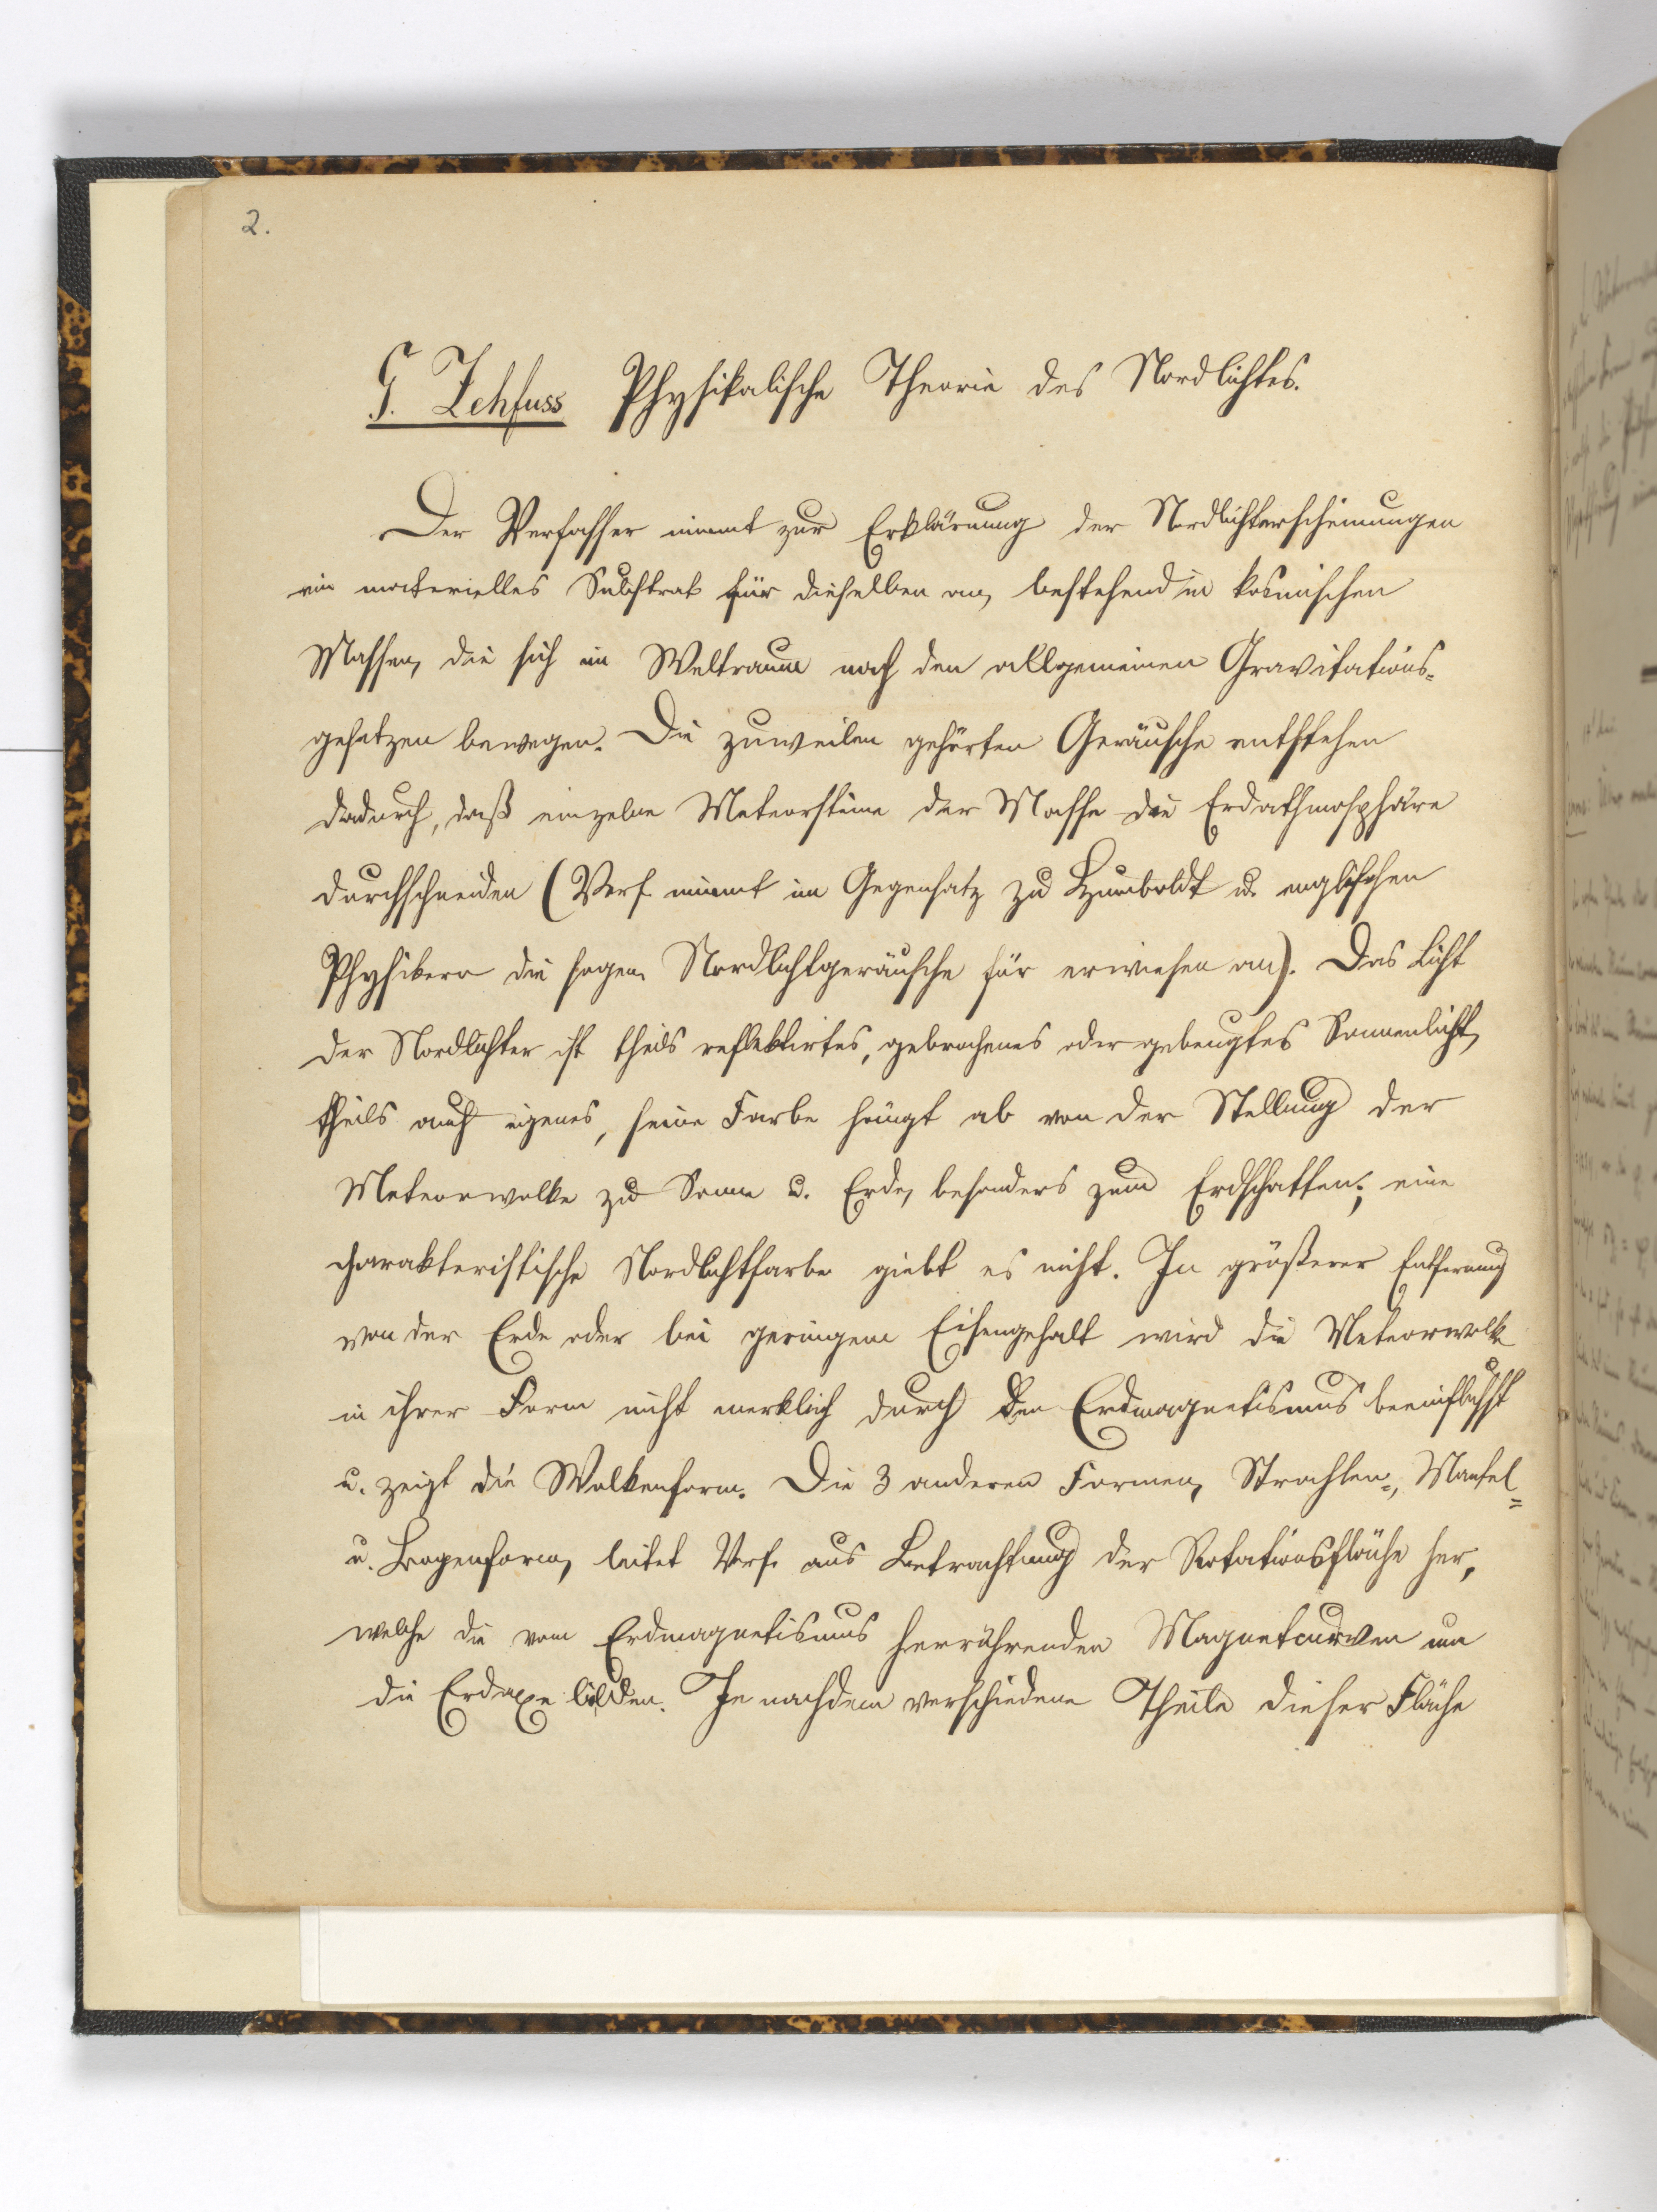 2.
G. Zehfuss Physikalische Theorie des Nordlichtes.
Der Verfasser nimmt zur Erklärung der Nordlichterscheinungen
ein materielles Substrat für dieselben an, bestehend in kosmischen
Massen, die sich im Weltraume nach den allgemeinen Gravitations-
gesetzen bewegen. Die zuweilen gehörten Geräusche entstehen
dadurch, daß einzelne Meteorsteine der Masse die Erdathmosphäre
durchschneiden (Verf. nimmt im Gegensatz zu Humboldt u. englischen
Physikern die sogen. Nordlichtgeräusche für erwiesen an). Das Licht
der Nordlichter ist theils reflektirtes, gebrochenes oder gebeugtes Sonnenlicht,
theils auch eigenes, seine Farbe hängt ab von der Stellung der
Meteorwolke zu Sonne u. Erde, besonders zum Erdschatten; eine
charakteristische Nordlichtfarbe giebt es nicht. In größerer Entfernung
von der Erde oder bei geringem Eisengehalt wird die Meteorwolke
in ihrer Form nicht merklich durch den Erdmagnetismus beeinflusst
u. zeigt die Wolkenform. Die 3 anderen Formen, Strahlen-, Mantel-
u. Bogenform, leitet Verf. aus Betrachtung der Rotationsfläche her,
welche die vom Erdmagnetismus herrührenden Magnetcurven um
die Erdaxe bilden. Je nachdem verschiedene Theile dieser Fläche